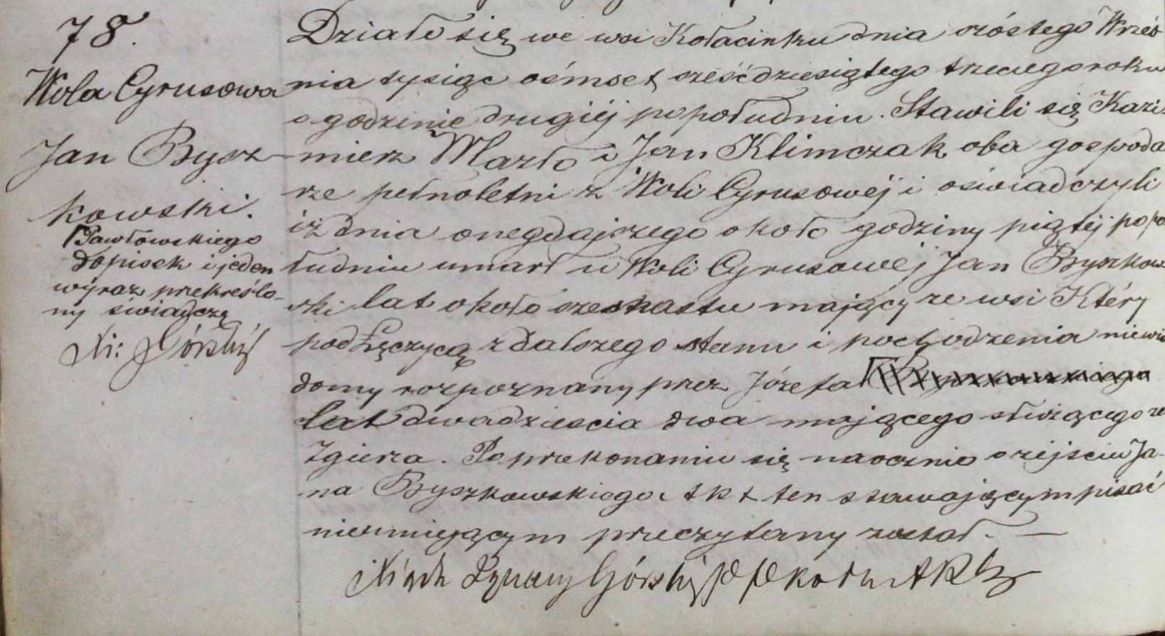 78.
Wola Cyrusowa
Jan Bysz-
kowski.
Pawłowskiego
dopisek i jeden
wyraz prekreślo-
ny świadczę
Górski
Działo się we wsi Kołacinku dnia szóstego Wrześ
nia tysiąc ośmset sześćdziesiątego trzeciego roku
o godzinie drugiéj popołudniu. Stawili się Kazi
mierz Mazło i Jan Klimczak oba gospoda
rze pełnoletni z Woli Cyrusowéj i oświadczyli
iż dnia onegdajszego około godziny piątéj popo
łudniu umarł w Woli Cyrusowéj Jan Byszkow
ski lat około szesnastu mający ze wsi Który
pod Łęczycą z dalszego stanu i pochodzenia niewia
domy rozpoznany przez Józefa
lat dwadzieścia dwa mającego służącego ze
Zgierza. Po przekonaniu się naocznie o zejściu Ja-
na Byszkowskiego Akt ten stawającym pisać
nieumiejącym przeczytany został.
Ignacy Górski